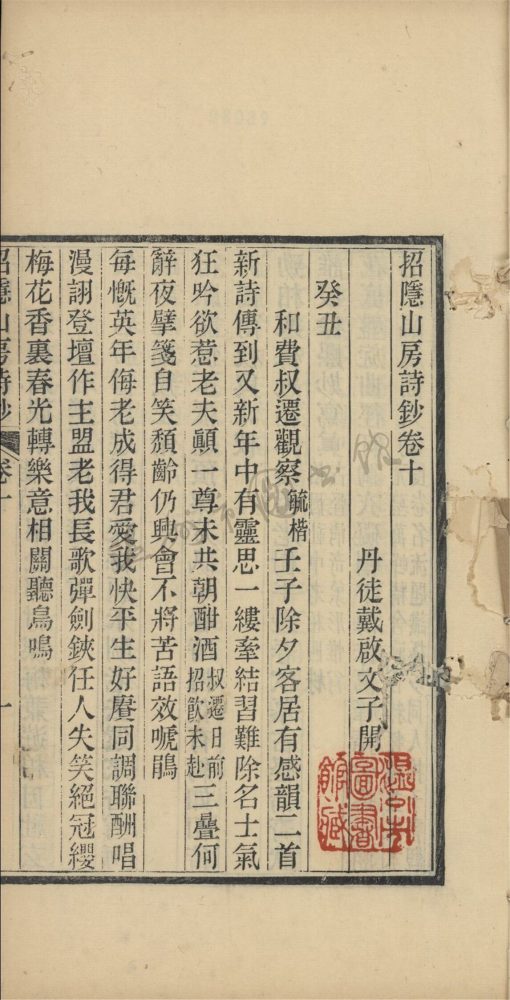 招隱山房詩鈔卷十
丹徒戴啟文子開
癸丑
和費叔遷觀察毓楷壬子除夕客居有感韻二首
新詩傳到又新年中有靈思一縷牽結習難除名士氣
狂吟欲惹老夫顛一尊未共朝酣酒叔遷日前招飲未赴三疊何
辭夜擘箋自笑頹齡仍興會不將苦語效啼鵑
每慨英年侮老成得君愛我快平生好賡同調聯酬唱
漫詡登壇作主盟老我長歌彈劍鋏任人失笑絕冠纓
梅花香裏春光轉樂意相關聽鳥鳴
招隱山房詩鈔 卷十 一
溫州圖書館藏